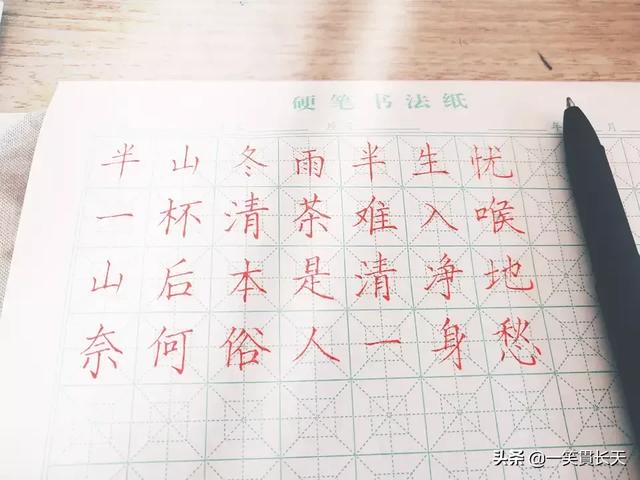 硬笔书法纸
年 月
半山冬雨半生忧
一杯清茶难入喉
山后本是清净地
奈何俗人一身愁
头条 @一笑貫长天